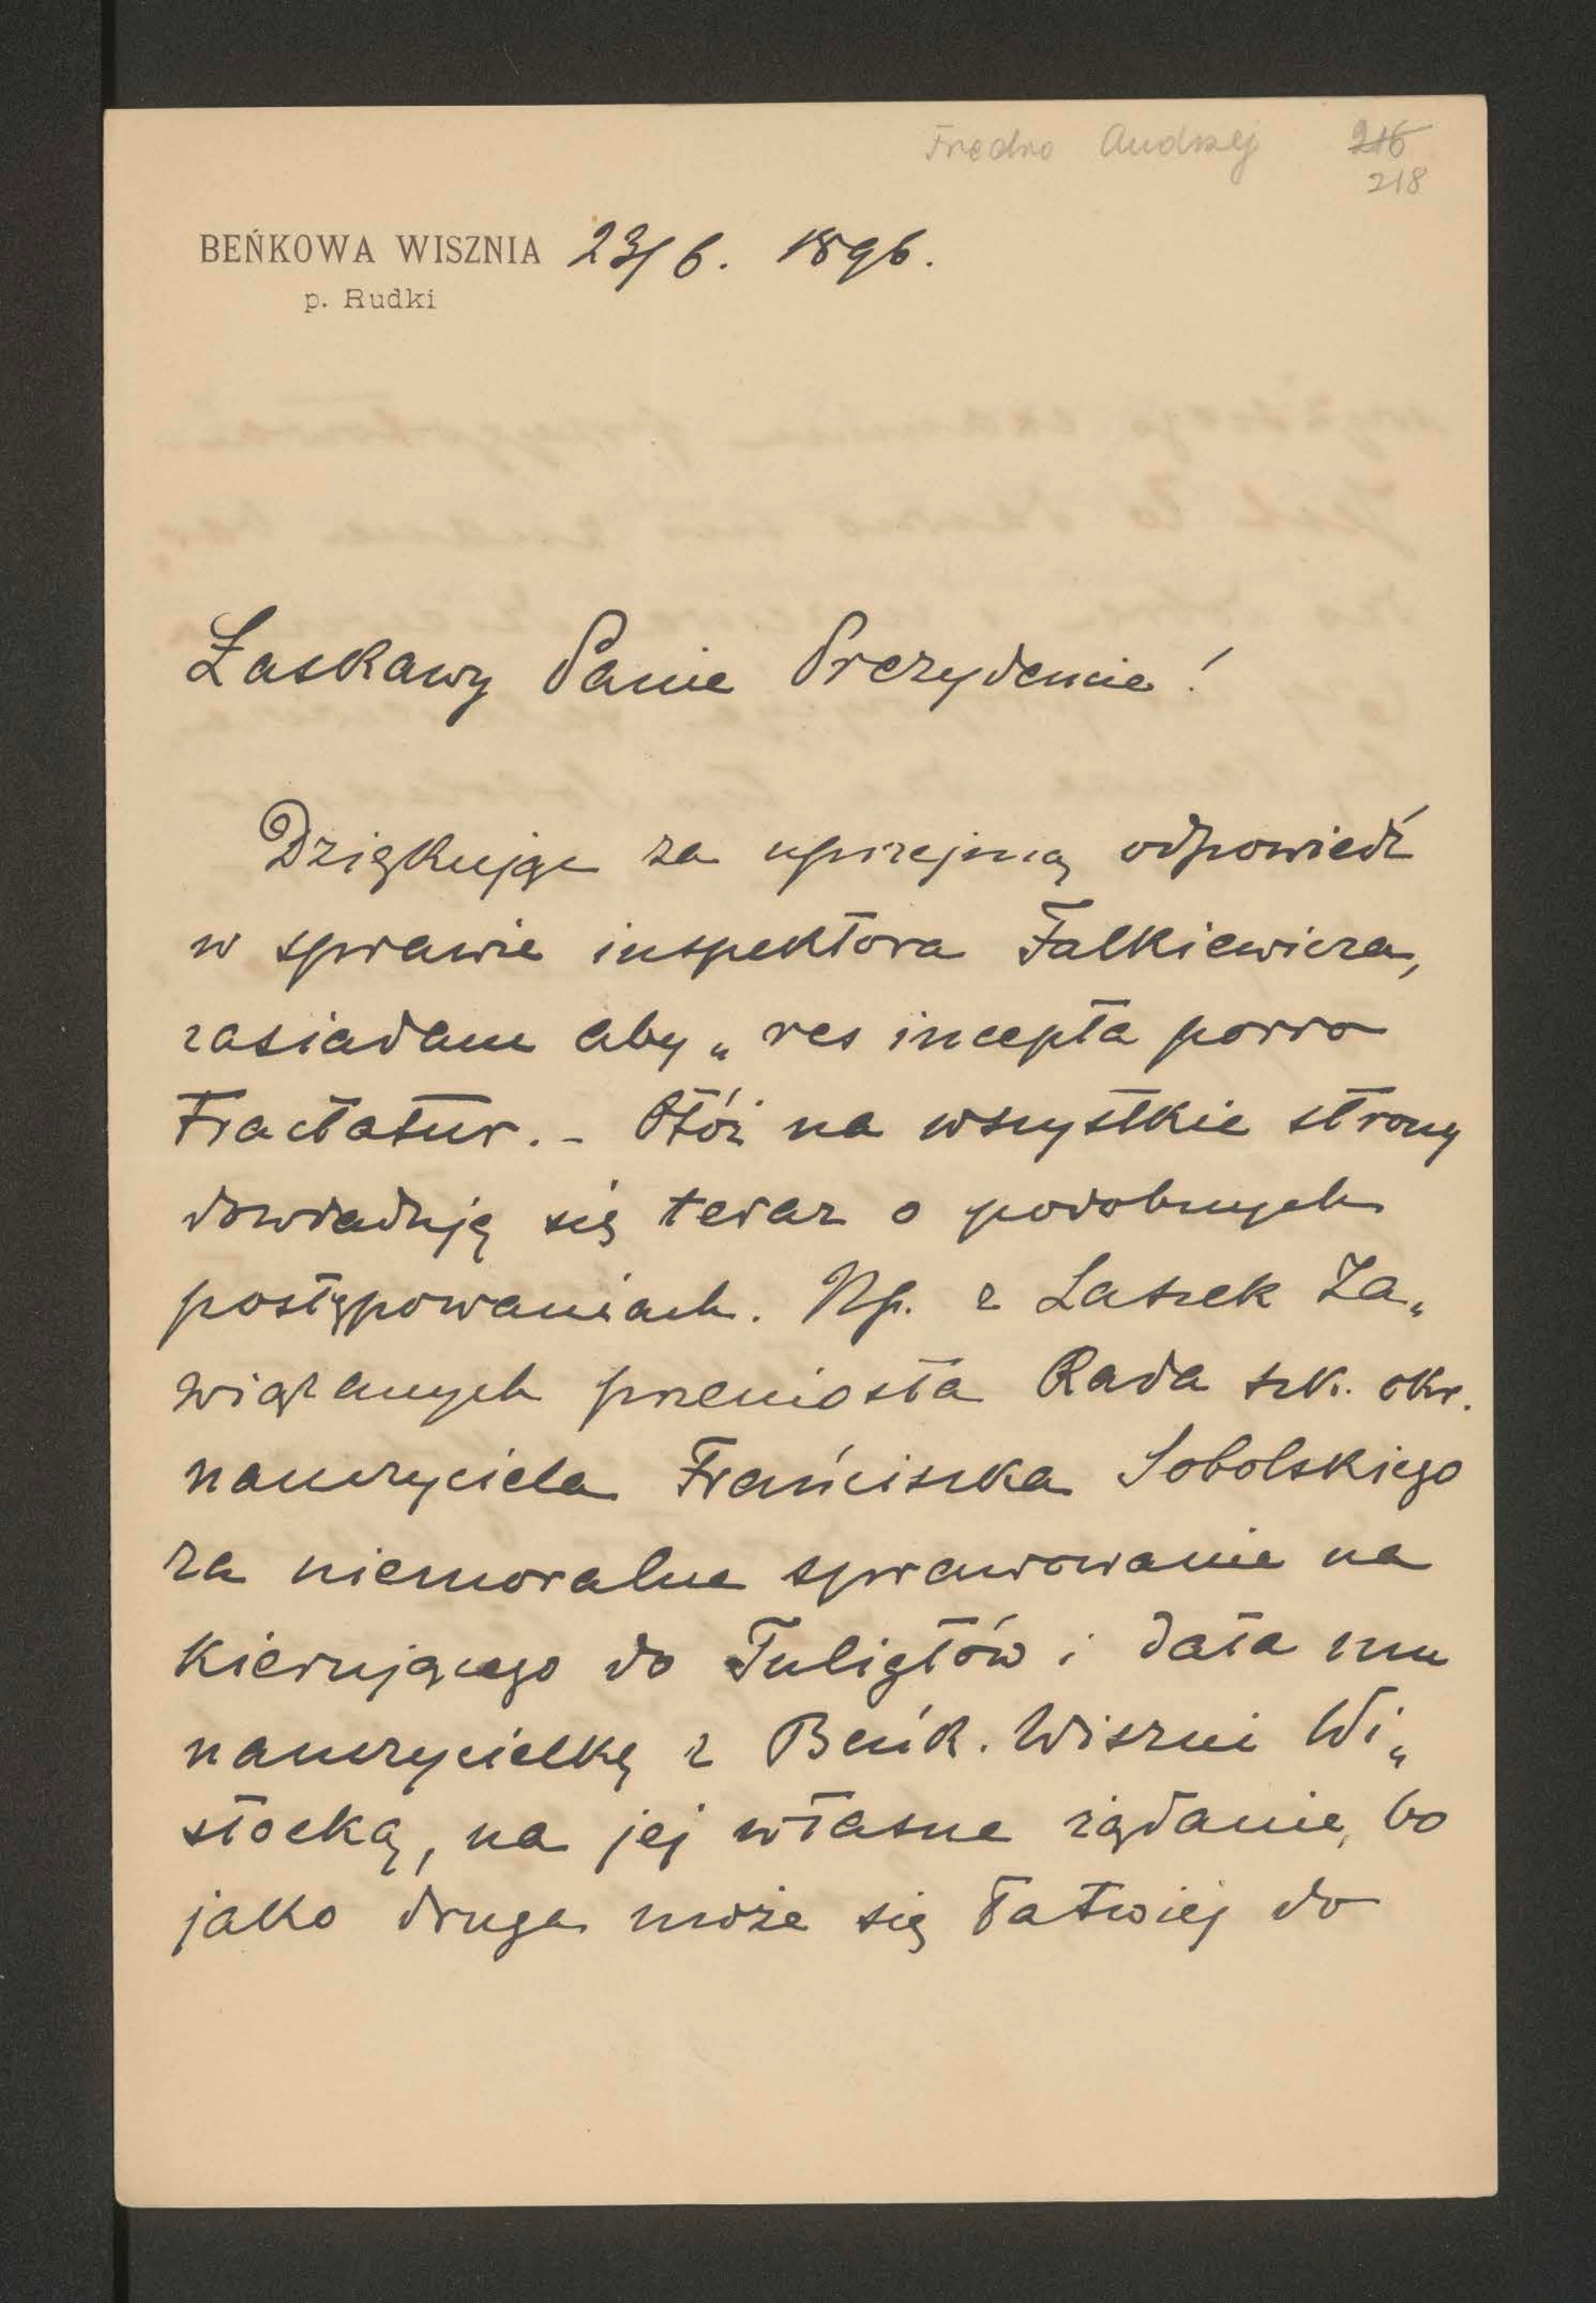 Fredro Andrzej 216
218
BEŃKOWA WISZNIA 23/6. 1896.
p. Rudki
Łaskawy Panie Prezydencie!
Dziękując za uprzejmą odpowiedź
w sprawie inspektora Falkiewicza,
zasiadam aby „res incepta porro
tractatur. - Otóż na wszystkie strony
dowiaduję się teraz o podobnych
postępowaniach. Np. z Laszek Za„
wiązanych przeniosła Rada szk. okr.
nauczyciela Franciszka Sobolskiego
za niemoralne sprawowanie na
kierującego do Tuligłów i dała mu
nauczycielkę z Beńk. Wiszni Wi„
słocką, na jej własne żądanie, bo
jako druga może się łatwiej do